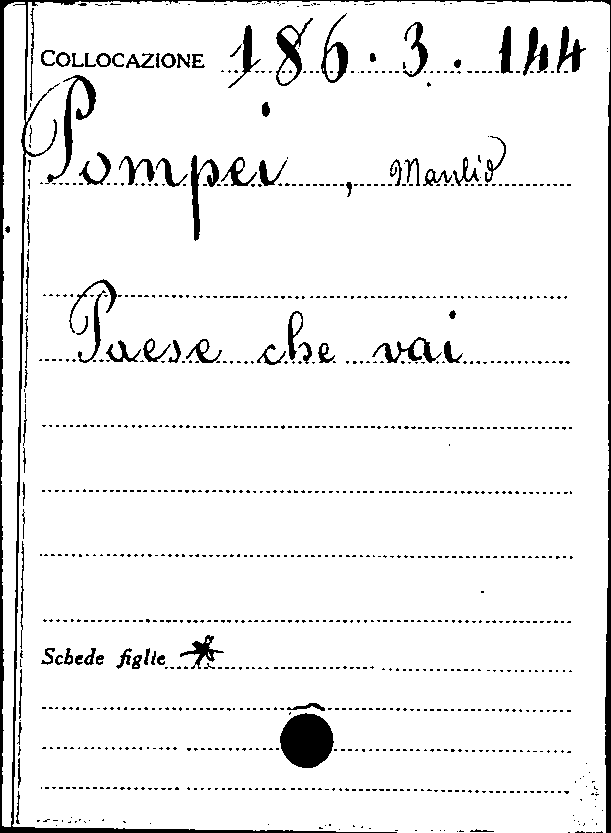 COLLOCAZIONE 186.3.144
Pompei, Manlio
Paese che vai
Schede figlie